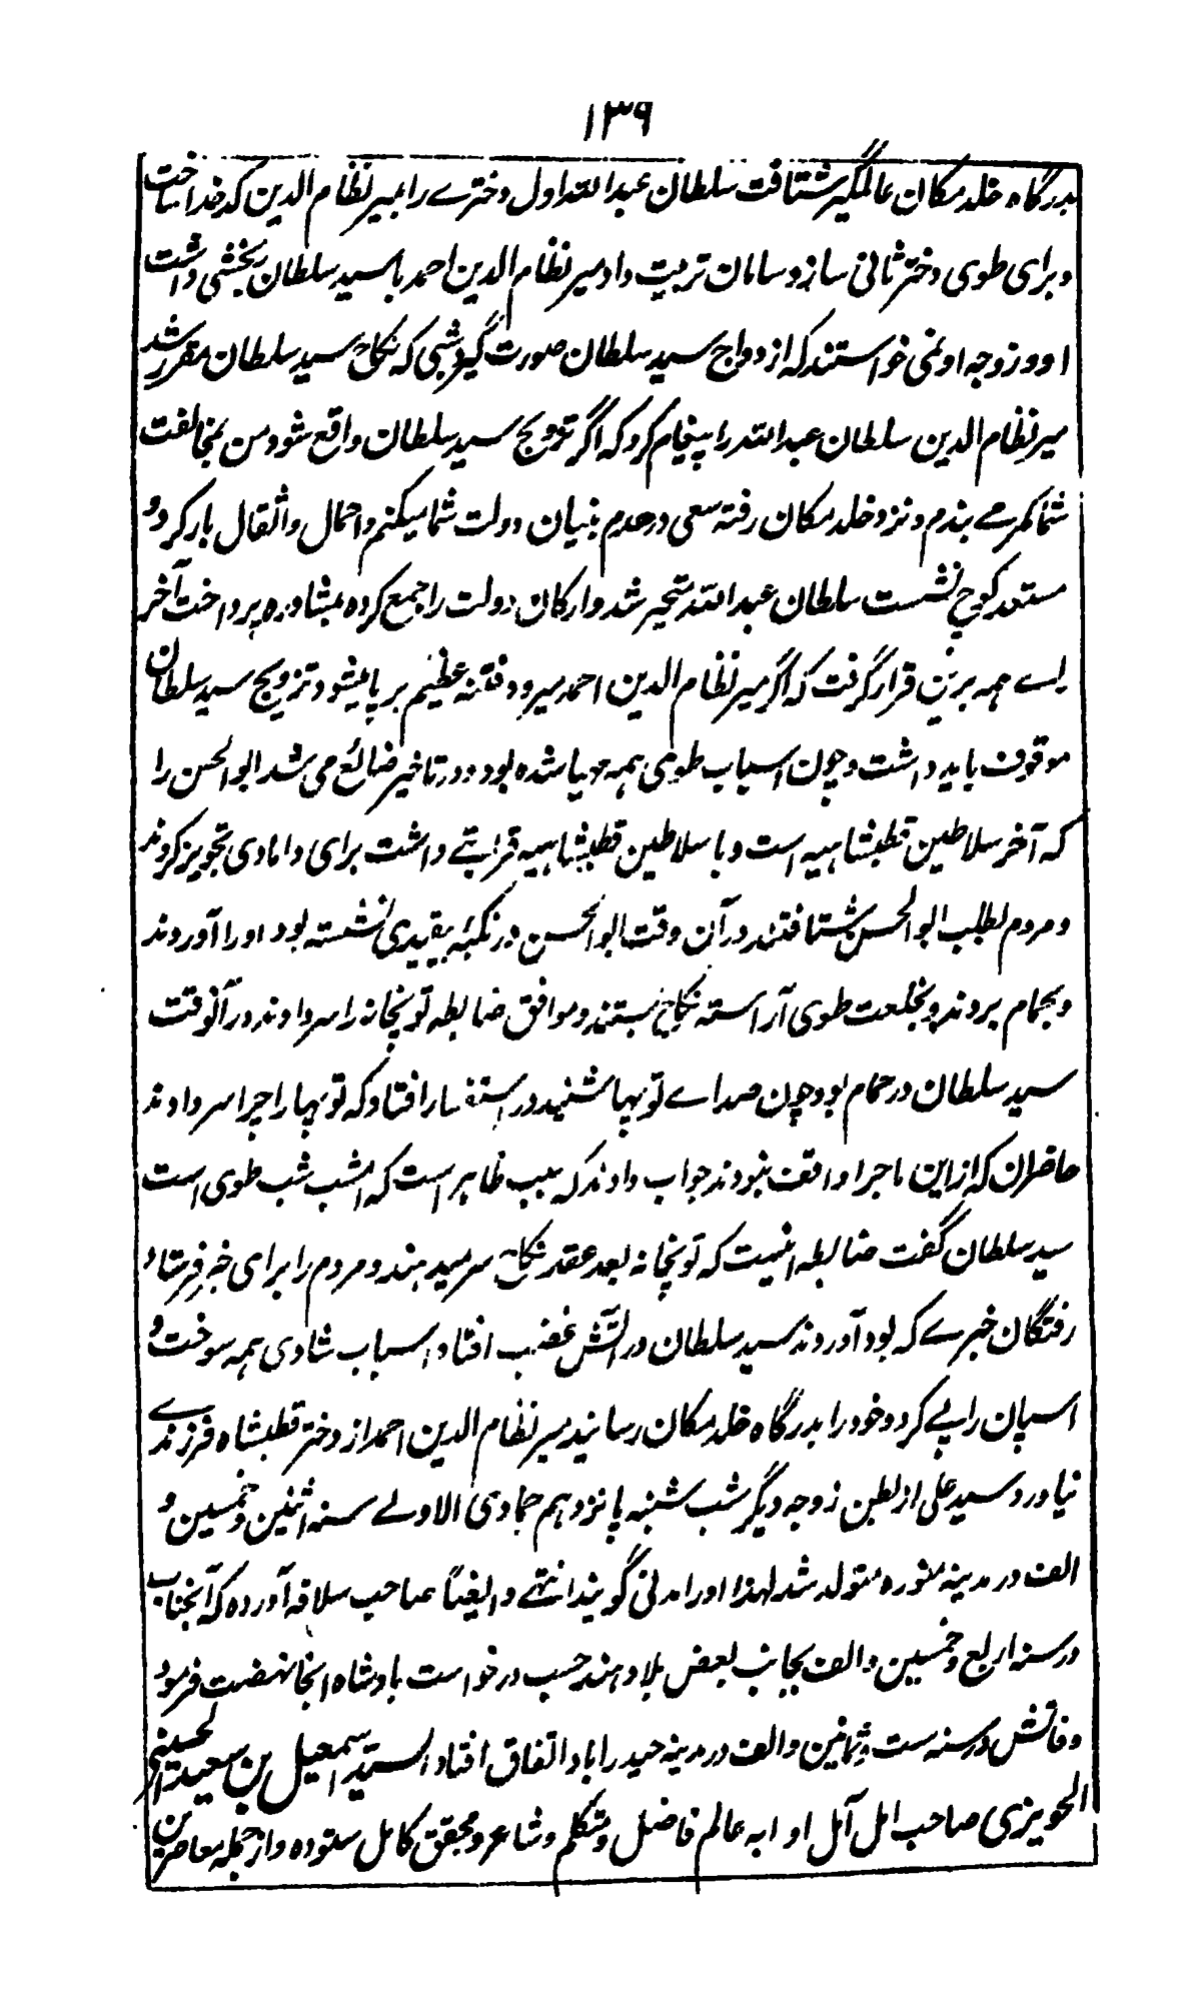 ۱۳۹
بدرگاه خلد مکان عالمگیر شتافت سلطان عبد الله اول دخترے را بمیر نظام الدین کدخدا ساخت
و برای طوی دختر ثانی ساز و سامان ترتیب داد میر نظام الدین احمد با سید سلطان رنجشی داشت
او و زوجه او نمی خواستند که ازدواج سید سلطان صورت گیرد شبی که نکاح سید سلطان مقرر شد
میر نظام الدین سلطان عبد الله را پیغام کرد که اگر تزویج سید سلطان واقع شود من بمخالفت
شما کمر مے بندم و نزد خلد مکان رفته سعی در هدم بنیان دولت شما میکنم و احمال و اثقال بار کرد و
مستعد کوچ نشست سلطان عبد الله متحیر شد و ارکان دولت را جمع کرده بمشاوره پرداخت آخر
راے همه برین قرار گرفت که اگر میر نظام الدین احمد میرود فتنه عظیم بر پا میشود تزویج سید سلطان
موقوف باید داشت و چون اسباب طوی همه مهیا شده بود و در تاخیر ضائع می شد ابو الحسن را
که آخر سلاطین قطبشاهیه است و با سلاطین قطبشاهیه قرابتے داشت برای دامادی تجویز کردند
و مردم بطلب ابو الحسن شتافتند در آن وقت ابو الحسن در تکیه بقیدی نشسته بود او را آوردند
و بحمام بردند و بخلعت طوی آراسته نکاح بستند و موافق ضابطه توپخانه را سر دادند در آنوقت
سید سلطان در حمام بود چون صداے توپها شنید در استفسار افتاد که توپها را چرا سر دادند
حاضران که از این ماجرا واقف نبودند جواب دادند که سبب ظاهر است که امشب شب طوی است
سید سلطان گفت ضابطه اینست که توپخانه بعد عقد نکاح سر میدهند و مردم را برای خبر فرستاد
رفتگان خبرے که بود آوردند سید سلطان در آتش غضب افتاد اسباب شادی همه سوخت و
اسپان را پے کرد و خود را بدرگاه خلد مکان رسانید میر نظام الدین احمد از دختر قطبشاه فرزندے
نیاورد و سید علی از بطن زوجه دیگر شب شنبه پانزدهم جمادی الاولے سنه اثنین و خمسین و
الف در مدینه منوره متولد شد لهذا او را مدنی گویند انتهے و ایضاً صاحب سلافه آورده که آنجناب
در سنه اربع و خمسین و الف بجانب بعض بلاد هند حسب درخواست بادشاه انجا نهضت فرمود
وفاتش در سنه ست و ثمانین و الف در مدینه حیدراباد اتفاق افتاد السید اسمعیل بن سعید الحسینی
الحویزی صاحب امل آمل او ابه عالم فاضل و متکلم و شاعر و محقق کامل ستوده و از جمله معاصرین